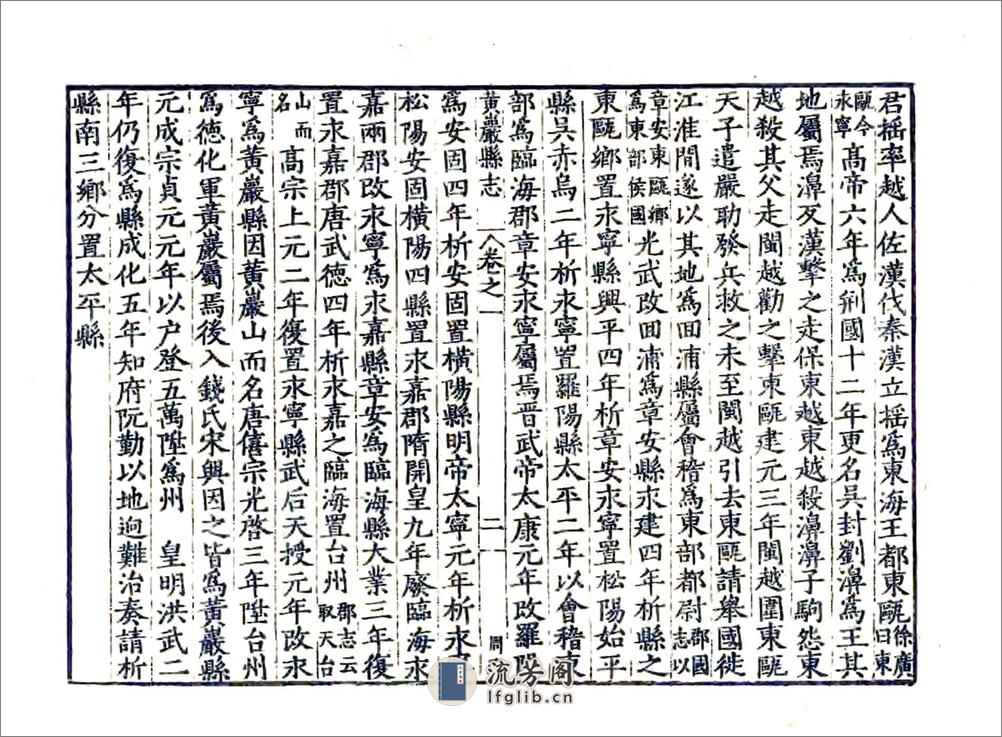 君摇率越人佐漢伐秦漢立摇爲東海王都東甌徐廣曰東
甌今永寧髙帝六年爲荊國十二年更名吳封劉濞爲王其
地屬焉濞反漢擊之走保東越東越殺濞濞子駒怨東
越殺其父走閩越勸之擊東甌建元三年閩越圍東甌
天子遣嚴助發兵救之未至閩越引去東甌請舉國徙
江淮間遂以其地爲回浦縣屬會稽爲東部都尉郡國志以
章安東甌鄉爲東部侯國光武改回浦爲章安縣永建四年析縣之
東甌鄉置永寧縣興平四年析章安永寧置松陽始平
縣吳赤烏二年析永寧置羅陽縣太平二年以會稽東
部爲臨海郡章安永寧屬焉晋武帝太康元年改羅陽
黄巖縣志 卷之一 二 周
爲安固四年析安固置橫陽縣明帝太寧元年析永寧
松陽安固橫陽四縣置永嘉郡隋開皇九年廢臨海永
嘉兩郡改永寧爲永嘉縣章安爲臨海縣大業三年復
置永嘉郡唐武德四年析永嘉之臨海置台州郡志云取天台
山而名高宗上元二年復置永寧縣武后天授元年改永
寧爲黄巖縣因黄巖山而名唐僖宗光啓三年陞台州
爲德化軍黄巖屬焉後入錢氏宋興因之皆爲黄巖縣
元成宗貞元元年以户登五萬陞爲州 皇明洪武二
年仍復爲縣成化五年知府阮勤以地迥難治奏請析
縣南三鄉分置太平縣
流芳阁
lfglib.cn